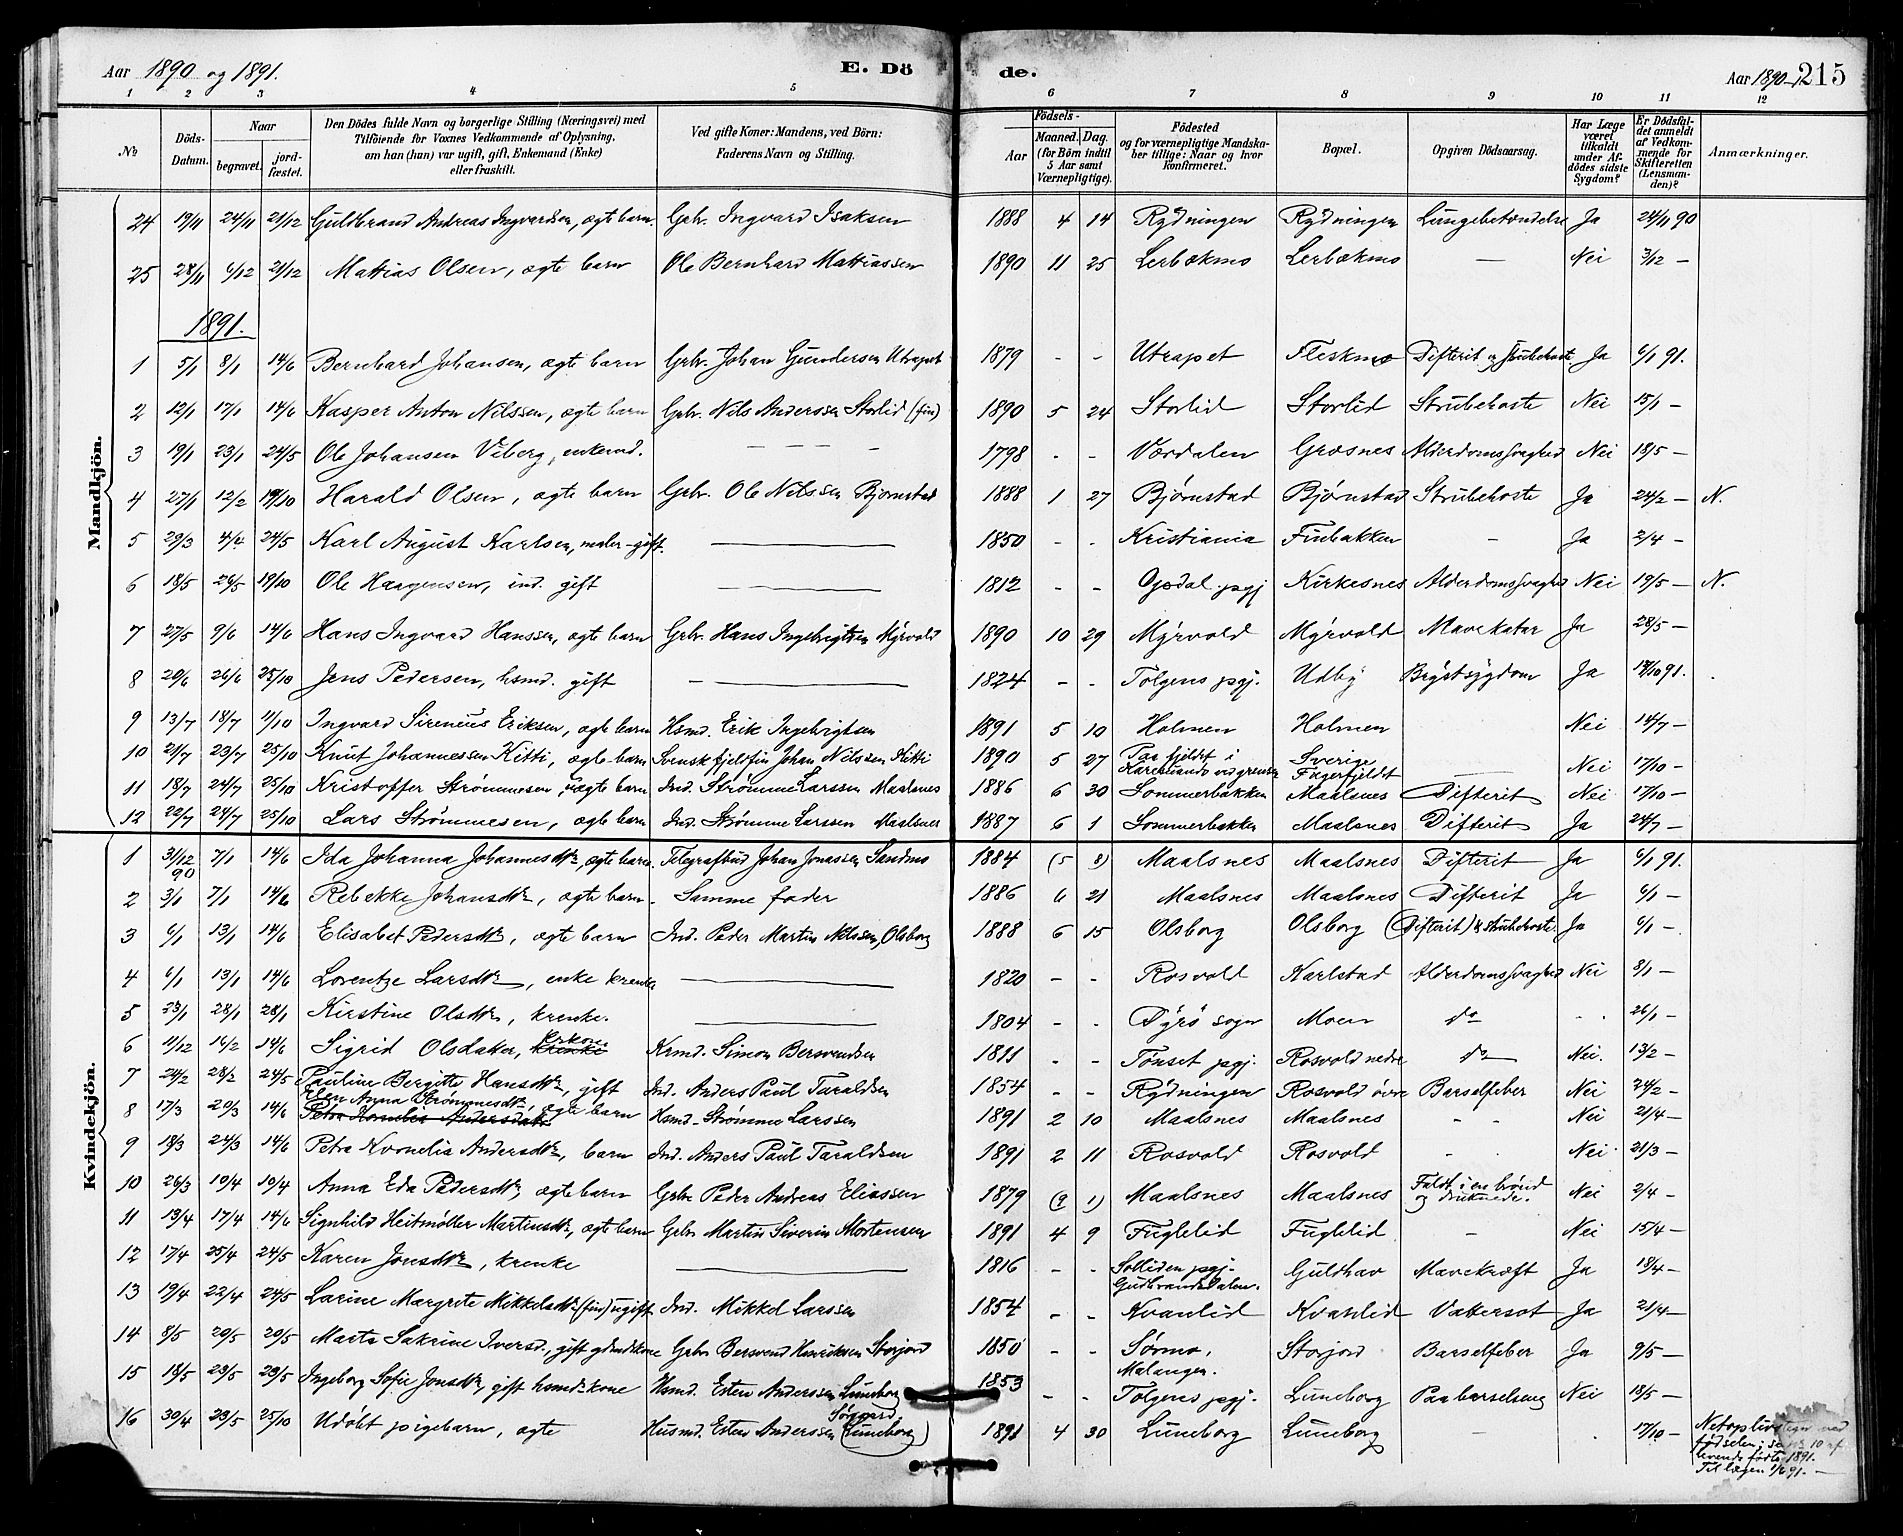 Aar 1890 og 1891. E. Dö de. Aar 1890-1. 215
1 2 3 4 5 6 7 8 9 10 11 12
No Döds-Datum. Naar begravet. jord-fæstet. Den Dödes fulde Navn og borgerlige Stilling (Næringsvei) med Tilföiende for Voxnes Vedkommende af Oplysning, om han (hun) var ugift, gift, Enkemand (Enke) eller fraskilt. Ved gifte Koner: Mandens, ved Börn: Faderens Navn og Stilling. Födsels- Aar Maaned. Dag. (for Börn indtil 5 Aar samt Værnepligtige). Födested og for værnepligtige Mandskaber tillige: Naar og hvor konfirmeret. Bopæl. Opgiven Dödsaarsag. Har Læge været tilkaldt under Afdödes sidste Sygdom? Er Dödsfaldet anmeldt af Vedkommende for Skifteretten (Lensmanden)? Anmærkninger.
Mandkjön.
24 19/11 24/11 21/12 Guldbrand Andreas Ingvardsen, ægte barn. Grbr. Ingvard Isaksen 1888 4 14 Rydningen Rydningen Lungebetændelse Ja 24/11 90
25 28/11 6/12 21/12 Mattias Olsen, ægte barn Ole Bernhard Mattiassen 1890 11 25 Lerbækmo Lerbækmo — Nei 3/12 —
1891.
1 5/1 8/1 14/6 Bernhard Johansen, ægte barn Grbr. Johan Gundersen Utrapet 1879 - - Utrapet Fleskmo Difterit og Strubehoste Ja 6/1 91.
2 12/1 17/1 14/6 Kasper Anton Nilssen, ægte barn Grbr. Nils Anderssen Storlid (fin) 1890 5 24 Storlid Storlid Strubehoste Nei 15/1 —
3 19/1 23/1 24/5 Ole Johansen Viberg, enkemd. — — — 1798 - - Værdalen Græsnes Alderdomssvaghed Nei 18/5 —
4 27/1 12/2 19/10 Harald Olsen, ægte barn Grbr. Ole Nilssen Bjørnstad 1888 1 27 Bjørnstad Bjørnstad Strubehoste Ja 24/2 — N.
5 29/3 4/4 24/5 Karl August Karlsen, maler - gift. — 1850 - - Kristiania Finbakken - Ja 2/4 —
6 18/5 26/5 19/10 Ole Haagensen, ind. gift — 1812 - - Opdal pgj Kirkesnes Alderdomssvaghed Nei 19/5 — N.
7 27/5 9/6 14/6 Hans Ingvard Hanssen, ægte barn Grbr. Hans Ingebrigtsen Myrvold 1890 10 29 Myrvold Myrvold Mavekatar Ja 28/5 —
8 20/6 26/6 25/10 Jens Pedersen, hsmd. gift — 1824 - - Tolgens pgj. Udby Brystsygdom Ja 17/10 91.
9 13/7 18/7 11/10 Ingvard Sirenius Eriksen, ægte barn Hsmd. Erik Ingebrigtsen 1891 5 10 Holmen Holmen Nei 14/7 —
10 21/7 23/7 25/10 Knut Johannessen Kitti, ægte barn Svensk fjeldfin Johan Nilssen Kitti 1890 5 27 Paa fjeldet i Karesuando ved grensen Sverige Fagerfjeldt — Nei 17/10 —
11 18/7 24/7 25/10 Kristoffer Strømmesen, uægte barn Ind. Strømme Larssen Maalsnes 1886 6 30 Sommerbakken Maalsnes Difterit Nei 17/10 —
12 22/7 24/7 25/10 Lars Strømmesen, ægte barn Ind. Strømme Larssen Maalsnes 1887 6 1 Sommerbakken Maalsnes Difterit Ja 24/7 —
Kvindekjön.
1 31/12 90 7/1 14/6 Ida Johanna Johannesdtr., ægte barn Telegrafbud Johan Jonassen Sandmo 1884 (5 8) Maalsnes Maalsnes Difterit Ja 6/1 91.
2 3/1 7/1 14/6 Rebekke Johansdtr., ægte barn. Samme fader 1886 6 21 Maalsnes Maalsnes Difterit Ja 6/1 —
3 6/1 13/1 14/6 Elisabet Pedersdtr., ægte barn Ind. Peder Martin Nilssen, Olsborg 1888 6 15 Olsborg Olsborg (Difterit) & strubehoste. Ja 6/1 —
4 6/1 13/1 14/6 Lorentze Larsdtr., enke krenke — 1820 - - Rosvold Karlstad Alderdomssvaghed Nei 8/1 —
5 23/1 28/1 28/1 Kirstine Olsdtr., krenke. — 1804 - - Dyrø sogn Moen do - - 26/1 —
6 11/12 16/2 14/6 Sigrid Olsdater, krenke Krmd. Simon Bersvendsen 1811 - - Tønset pgj. Rosvold nedre do Nei. 13/2 —
7 24/2 28/2 24/5 Pauline Bergitte Hansdtr., gift Ind. Anders Paul Taraldsen 1854 - - Rydningen Rosvold øvre Barselfeber Nei 24/2 —
8 17/3 20/3 14/6 Elen Anna Strømmesdtr., ægte barn Petra Kornelia Andersdatr. Hsmd. Strømme Larssen 1891 2 10 Maalsnes Maalsnes - - Nei 21/4 —
9 18/3 24/3 14/6 Petra Kornelia Andersdtr., barn Ind. Anders Paul Taraldsen 1891 2 11 Rosvold Rosvold - - Nei 21/3 —
10 26/3 10/4 19/4 Anna Eda Pedersdtr., ægte barn Grbr. Peder Andreas Eliassen 1879 (9 1) Maalsnes Maalsnes Faldt i en brønd og druknede. Nei 2/4 —
11 13/4 17/4 14/6 Signhild Heitmøller Martinsdtr., ægte barn Grbr. Martin Siverin Mortensen 1891 4 9 Fuglelid Fuglelid - Nei 15/4 —
12 17/4 25/4 24/5 Karen Jonsdtr., krenke — 1816 - - Solliden pgj. Gudbrandsdalen. Guldhav Mavekræft Ja 18/4 —
13 19/4 22/4 24/5 Larine Margrete Mikkelsdtr. (fin) ugift Ind. Mikkel Larssen 1854 - - Kvanlid Kvanlid Vattersot Ja 21/4 —
14 8/5 20/5 20/5 Marta Sakrine Iversd., gift grbrukkone Grbr. Bersvend Henriksen Storjord 1850 - - Sørmo, Malangen. Storjord Barselfeber Ja 9/5 —
15 18/5 23/5 23/5 Ingeborg Sofie Jonsdtr., gift hsmdskone Hsmd. Esten Anderssen Luneborg 1853 - - Tolgens pgj. Luneborg Paa barselseng Nei 18/5 —
16 30/4 23/5 25/10 Udøbt pigebarn, ægte Husmd. Esten Anderssen (Luneborg) 1891 4 30 Luneborg Luneborg - 17/10 — fødselen; levende fødte 1891. Til lægen 1/6 91. —